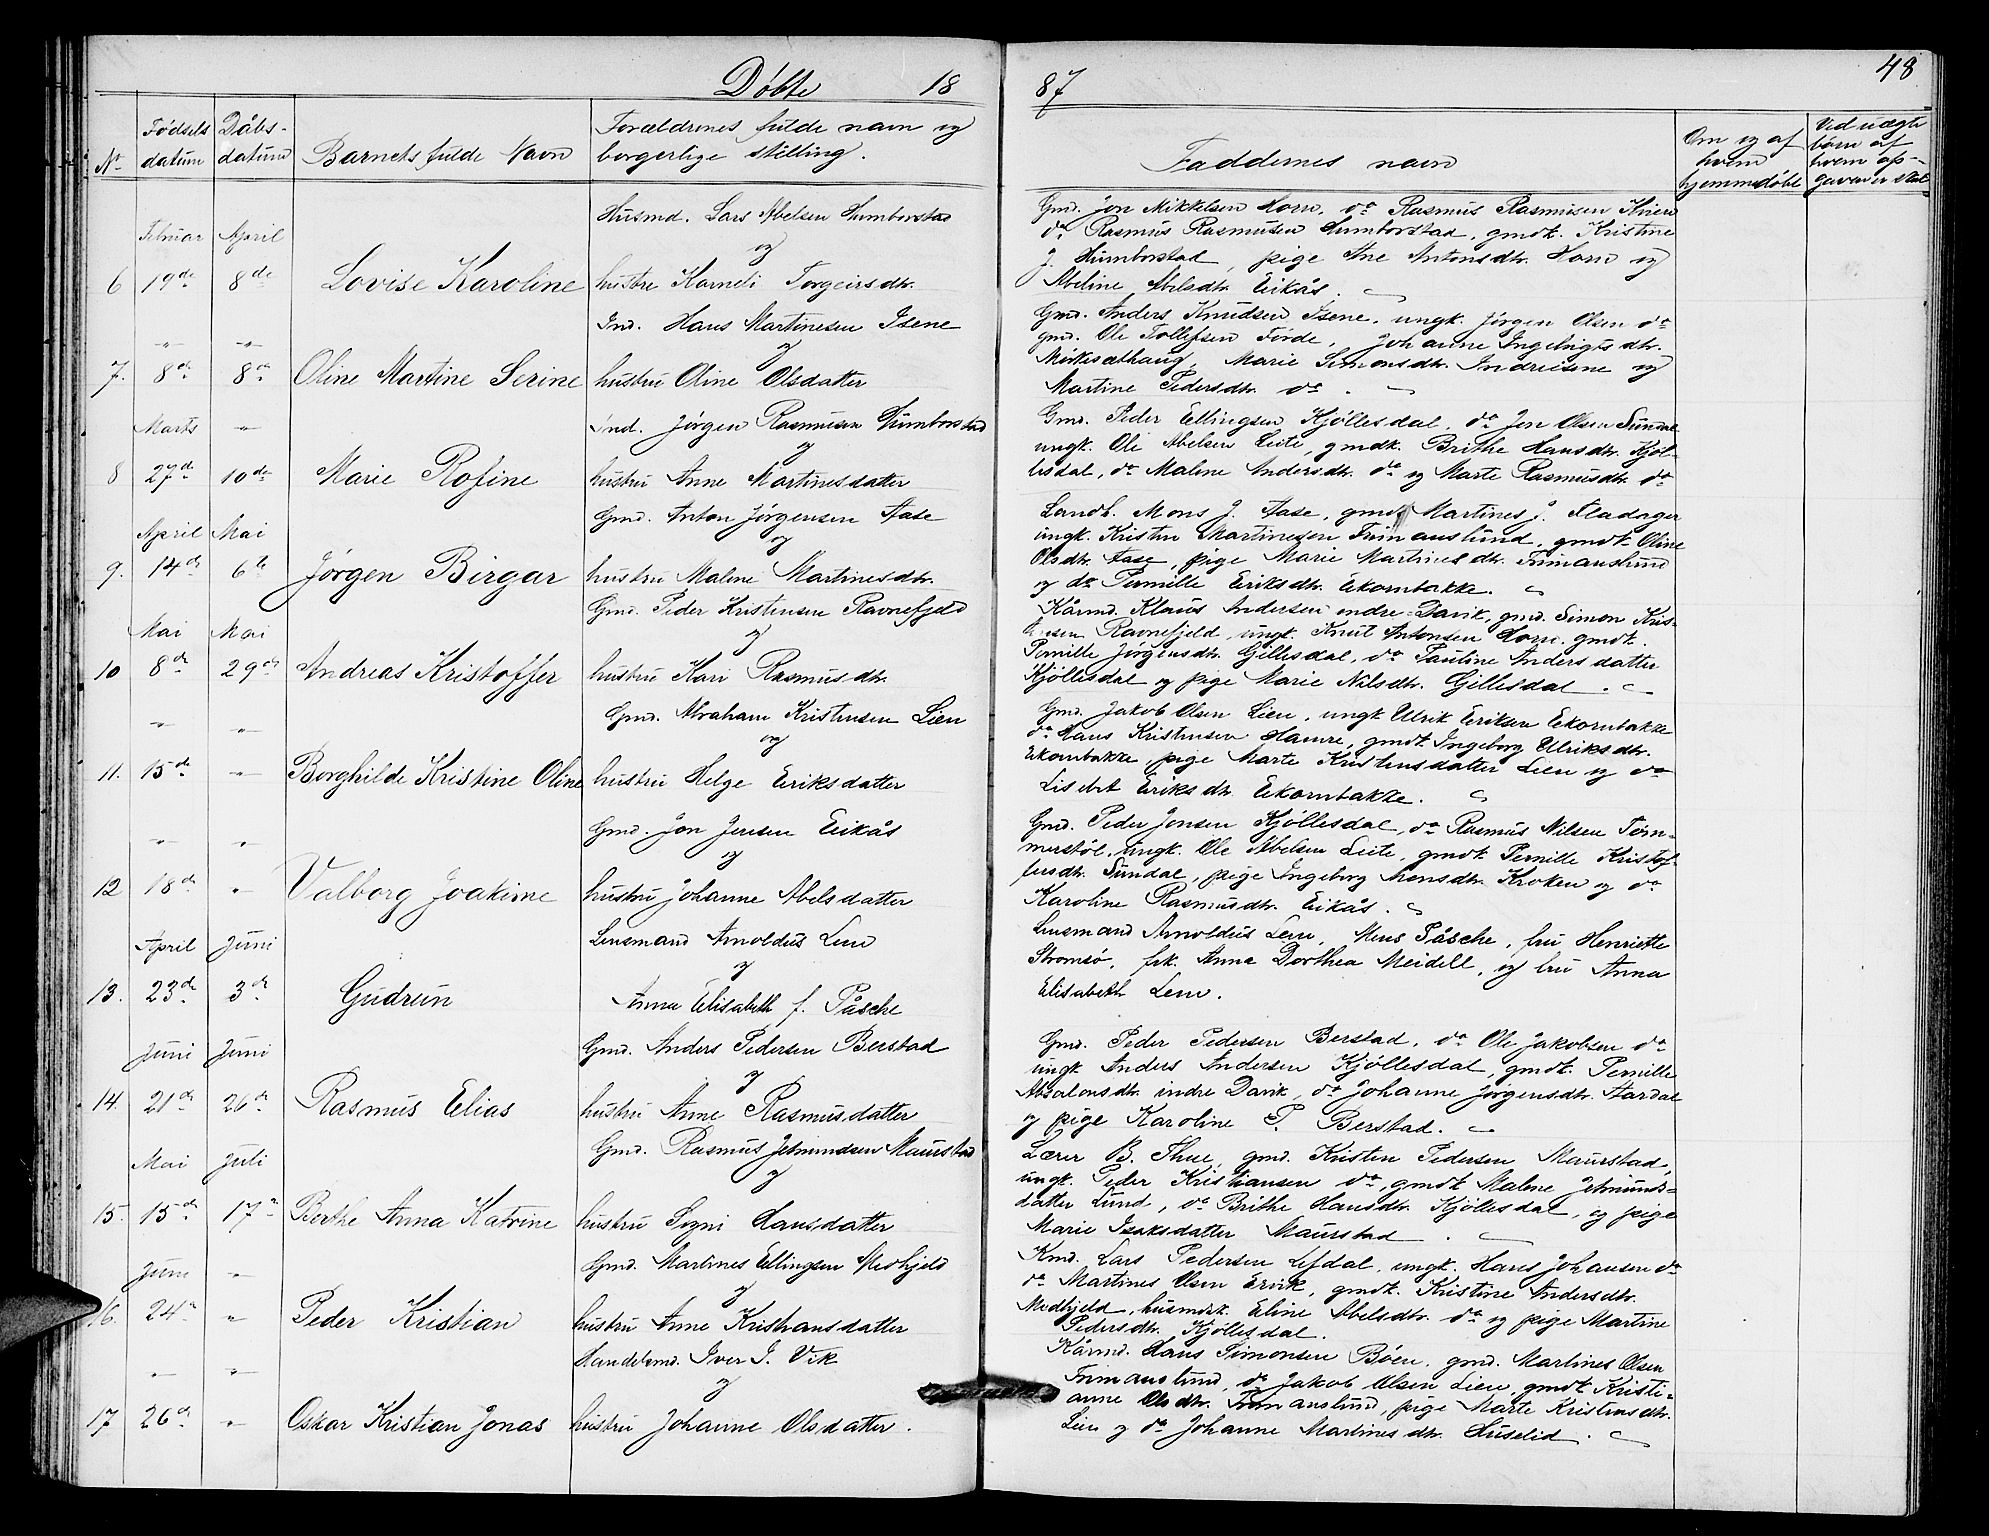 Døbte 18 87 48
No Fødsels datum Dåbs- datum Barnets fulde Navn Forældrenes fulde navn og borgerlige stilling.
Faddernes navn
Om og af hvem hjemmedøbt
Ved uægte børn af hvem op-
Husmd. Lars Abelsen Humborstad
Februar April og
6 19de 8de Lovise Karoline hustru Korneli Torgeirsdtr.
Gmd. Jon Mikkelsen Horn, do Rasmus Rasmusen
do Rasmus Rasmusen Humborstad, gmdk. Kristine
J. Humborstad, pige Ane Antonsdtr. Horn og
Abeline Abelsdtr. Eikås.
Ind. Hans Martinesen Isene
-"- -"- og
7. 8de 8de Oline Martine Serine hustru Oline Olsdatter
Gmd. Anders Knudsen Isene, ungk. Jørgen Olsen do
gmd. Ole Tollefsen Førde, Johanne Ingebrigtsdtr.
Marie Simonsdtr. Indreisene og
Martine Pedersdtr. do.
Ind. Jørgen Rasmusen Humborstad
Marts -"- og
8 27de 10de Marie Rosine hustru Anne Martinesdatter
Gmd. Peder Ellingsen Kjöllesdal, do Jon Olsen Sundal
ungk. Ole Abelsen Leite, gmdk. Brithe Hansdtr. Kjöl-
lesdal, do Malene Andersdtr. do og Marte Rasmusdtr. do
Gmd. Anton Jørgensen Aase
April Mai og
9. 14de 6te Jørgen Birgar hustru Malene Martinesdtr.
Landh. Mons J. Aase, gmd. Martines J. Fladager
ungk. Kristen Martinesen Frimanslund, gmdk. Oline
Olsdtr. Aase, pige Marie Martinesdtr. Frimanslund
og do Pernille Eriksdtr. Ekornbakke.
Gmd. Peder Kristensen Ravnefjeld
Mai Mai og
10 8de 29de Andreas Kristoffer hustru Kari Rasmusdtr.
Kårmd. Klaus Andersen indre Davik, gmd. Simon Kris-
tensen Ravnefjeld, ungk. Knut Antonsen Horn, gmdk.
Pernille Jørgensdtr. Gillesdal, do Pauline Andersdatter
Kjöllesdal og pige Marie Nilsdtr. Gillesdal.
Gmd. Abraham Kristensen Lien
-"- -"- og
11. 15de -"- Borghilde Kristine Oline hustru Helge Eriksdatter
Gmd. Jakob Olsen Lien, ungk. Ulrik Eriksen Ekornbakke
do Hans Kristensen Hamre, gmdk. Ingeborg Ulriksdtr.
Ekornbakke, pige Marte Kristensdatter Lien og do
Lisebet Eriksdtr. Ekornbakke.
Gmd. Jon Jensen Eikås
-"- -"- og
12 18de -"- Valborg Joakime hustru Johanne Abelsdatter
Gmd. Peder Jonsen Kjöllesdal, do Rasmus Nilsen Töm-
merstöl, ungk. Ole Abelsen Leite, gmdk. Pernille Kristof-
fersdtr. Sundal, pige Ingeborg Monsdtr. Kroken og do
Karoline Rasmusdtr. Eikås.
Lensmand Arnoldus Lem
April Juni og
13. 23de 3de Gudrun Anna Elisabeth f. Påsche
Lensmand Arnoldus Lem, Mons Påsche, fru Henriette
Stromsø, frk. Anna Dorthea Meidell, og fru Anna
Elisabeth Lem.
Gmd. Anders Pedersen Berstad
Juni Juni og
14. 21de 26de Rasmus Elias hustru Anne Rasmusdatter
Gmd. Peder Pedersen Berstad, do Ole Jakobsen do
ungk. Anders Andersen Kjöllesdal, gmdk. Pernille
Absalonsdtr. indre Davik, do Johanne Jørgensdtr. Aardal
og pige Karoline P. Berstad.
Gmd. Rasmus Jetmundsen Maurstad
Mai Juli og
15. 15de 17de Berthe Anna Katrine hustru Sogni Hansdatter
Lærer B. Thue, gmd. Kristen Pedersen Maurstad,
ungk. Peder Kristiansen do, gmdk. Malene Jetmunds-
datter Lund, do Brithe Hansdtr. Kjöllesdal, og pige
Marie Isaksdatter Maurstad.
Gmd. Martines Ellingsen Medhjeld
Juni -"- og
16. 24de -"- Peder Kristian hustru Anne Kristiansdatter
Kmd. Lars Pedersen Lefdal, ungk. Hans Johansen do
do Martines Olsen Ervik, gmdk. Kristine Andersdtr.
Medhjeld, husmdsk. Eline Abelsdtr. do og pige Martine
Pedersdtr. Kjöllesdal.
Handelsmd. Iver I. Vik
-"- -"- og
17 26de -"- Oskar Kristian Jonas hustru Johanne Olsdatter.
Kårmd. Hans Simonsen Böen, gmd. Martines Olsen
Frimanslund, do Jakob Olsen Lien, gmdk. Kristi-
anne Olsdtr. Frimanslund, pige Marte Kristensdtr.
Lien og do Johanne Martinesdtr. Huselid.